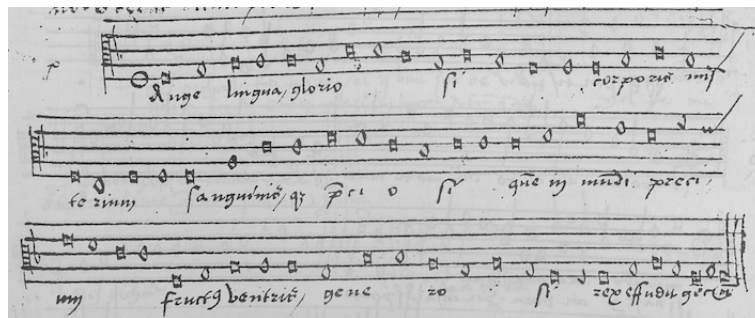 ange lingua, glorio si corporis mis
terium sanguinis, qz p̄ci o si que in mūdi preci
um fructꝰ ventris, gene ro si rex effudit geciū